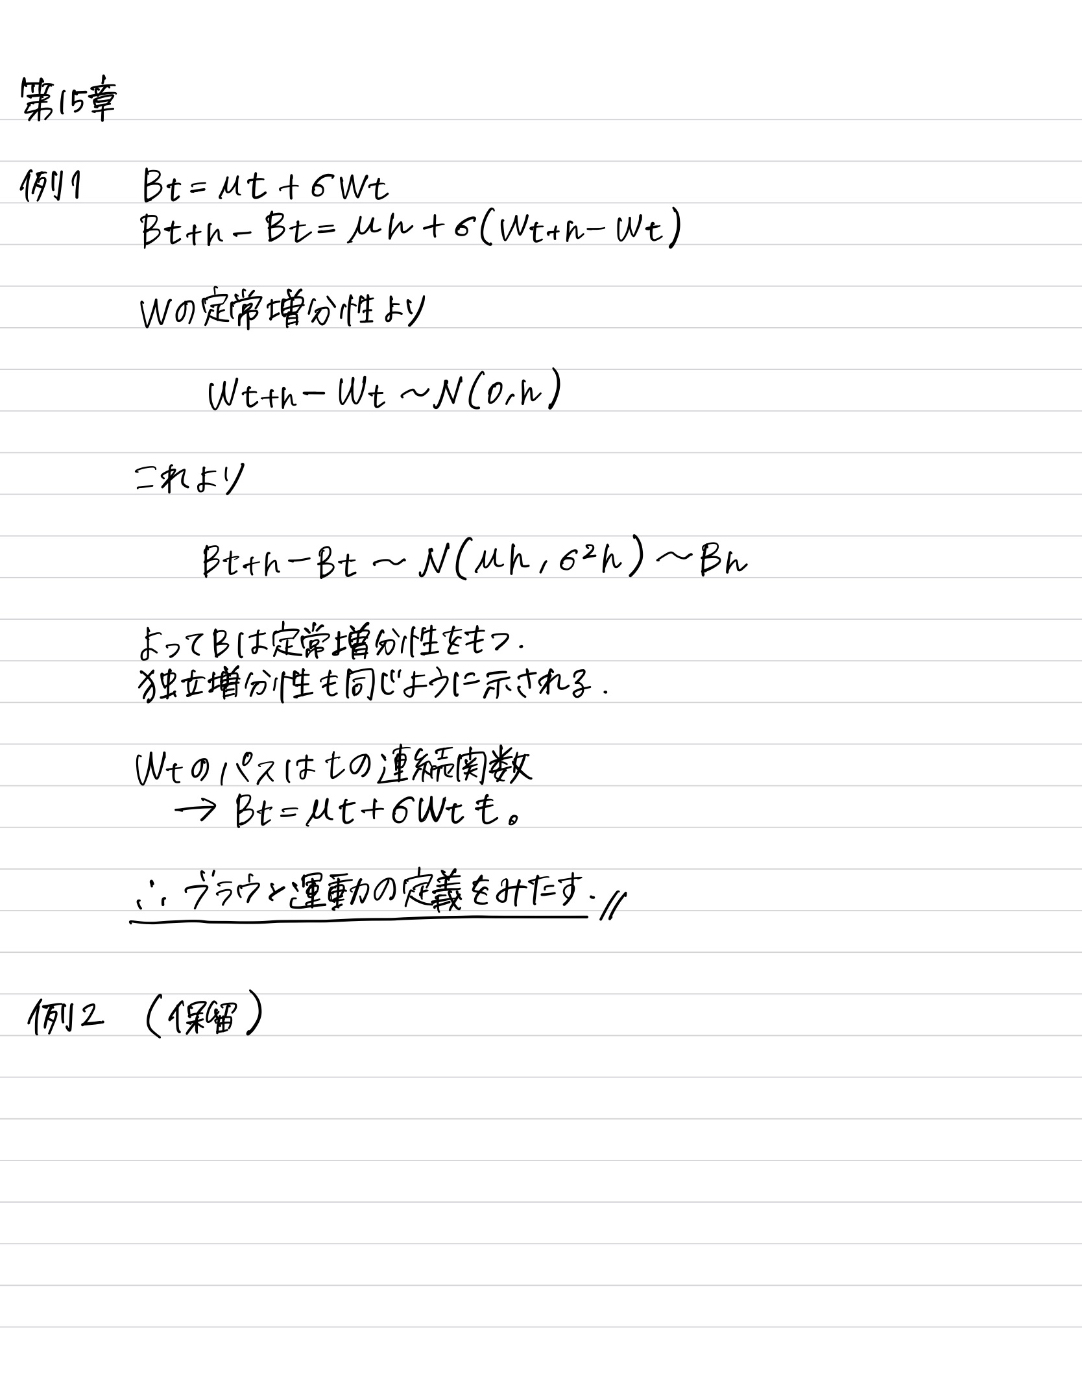 第15章
例1 Bt = μt + σWt
Bt+h − Bt = μh + σ(Wt+h − Wt)
Wの定常増分性より
Wt+h − Wt ~ N(0, h)
これより
Bt+h − Bt ~ N(μh, σ²h) ~ Bh
よってBは定常増分性をもつ.
独立増分性も同じように示される.
Wtのパスはtの連続関数
→ Bt = μt + σWtも。
∴ ブラウン運動の定義をみたす. //
例2 (保留)